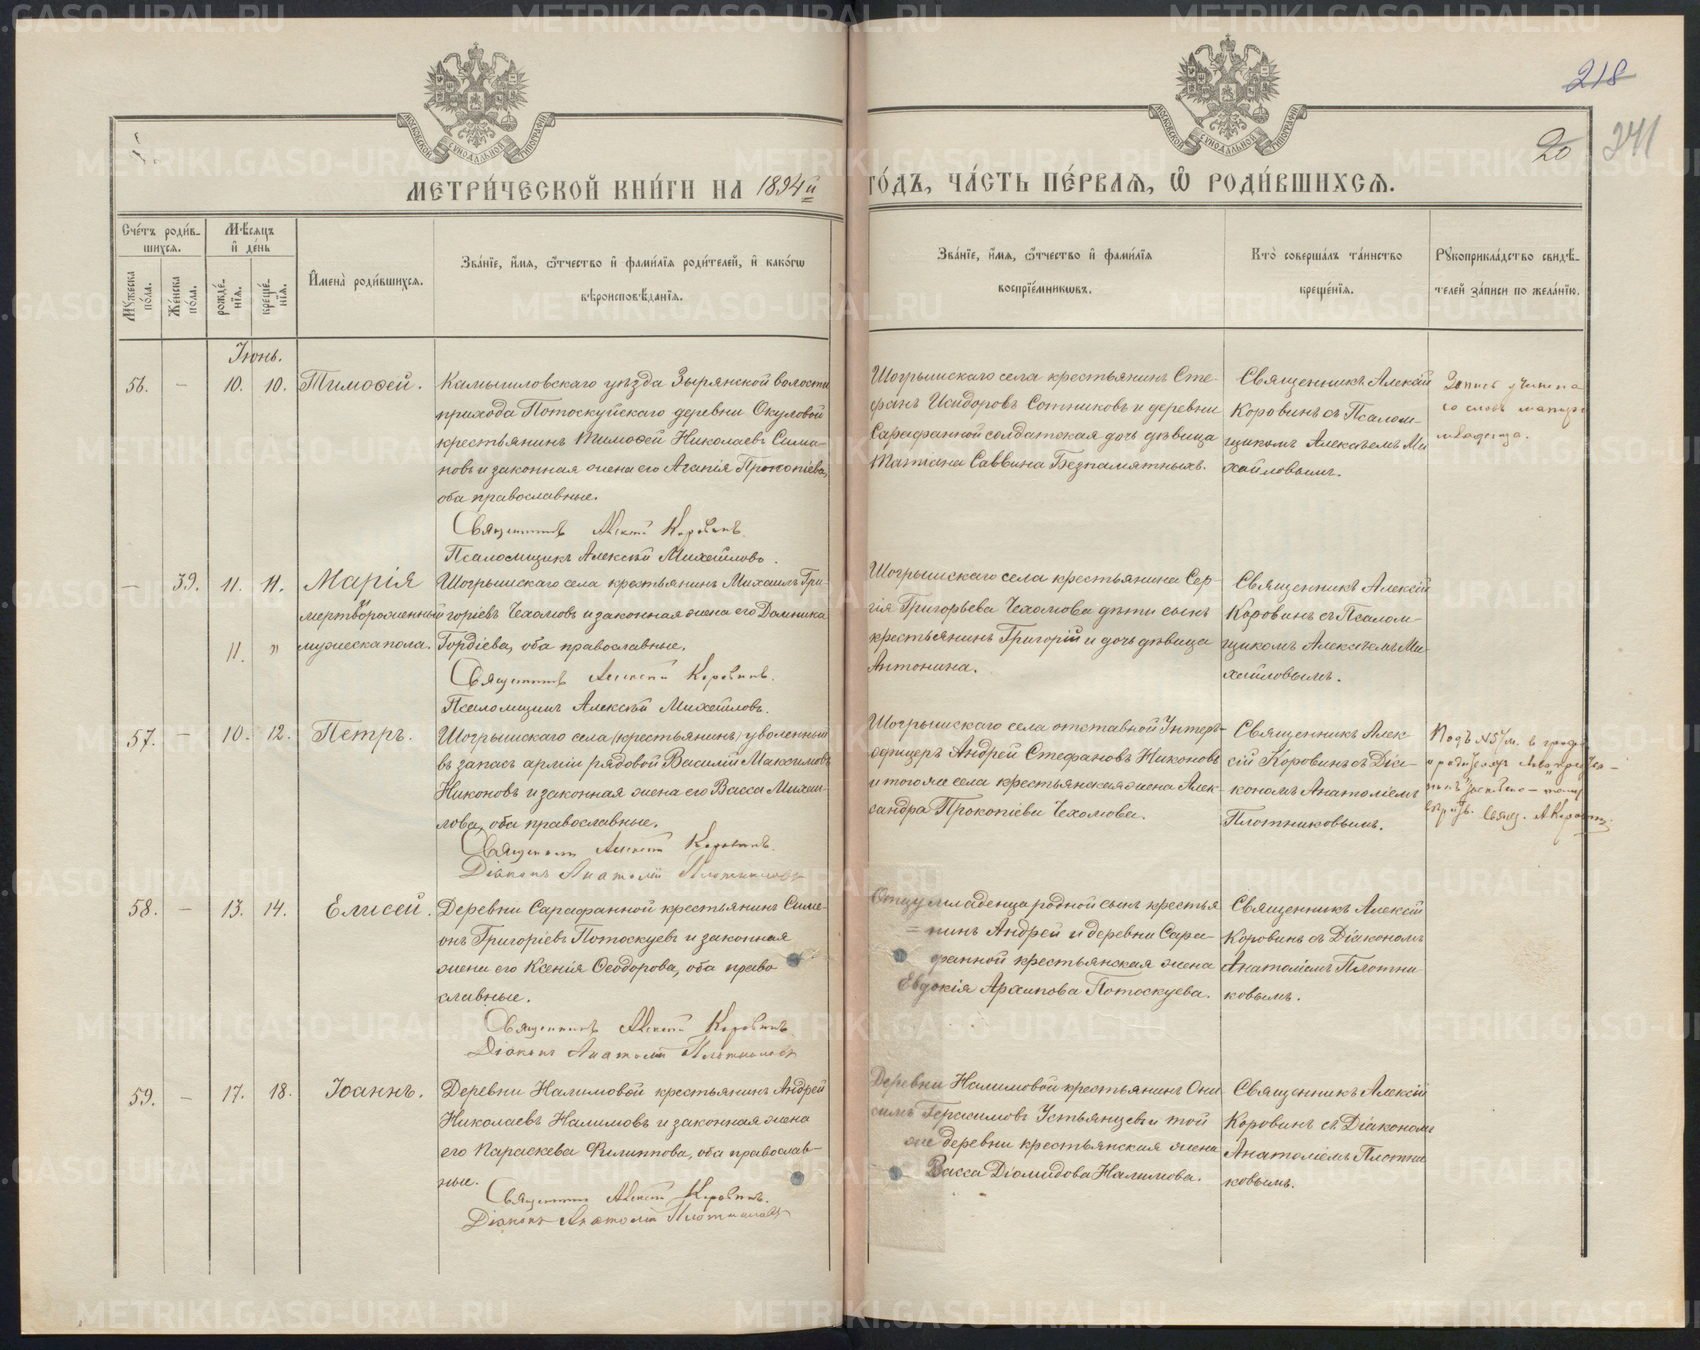 218
20 241
МЕТРИ́ЧЕСКОЙ КНИ́ГИ НА 1894й ГО́ДЪ, ЧА́СТЬ ПЕ́РВАЯ, Ѡ РОДИ́ВШИХСЯ.
Сче́тъ роди́в-
шихся.
Мужеска по́ла.
Же́нска по́ла.
Мѣ́сяцъ и де́нь
рожде́нїя.
креще́нїя.
Имена̀ роди́вшихся.
Зва́нїе, и́мя, ѻ́тчество и фами́лїя роди́телей, и како́гѡ
вѣроисповѣ́данїя.
Зва́нїе, и́мя, ѻ́тчество и фами́лїя
воспрїе́мникѡвъ.
Кто̀ соверша́лъ та́инство
креще́нїя.
Рукоприкла́дство свидѣ́-
телей за́писи по жела́нїю.
Іюнь.
56. — 10. 10. Тимоѳей.
Камышловскаго уѣзда Зырянской волости
прихода Потоскуйскаго деревни Окуловой
крестьянинъ Тимоѳей Николаевъ Сима-
новъ и законная жена его Агапія Прокопіева,
оба православные.
Священникъ Алексій Коровинъ.
Псаломщикъ Алексѣй Михайловъ.
Шогрышскаго села крестьянинъ Сте-
фанъ Исидоровъ Сотниковъ и деревни
Сарафанной солдатская дочь дѣвица
Татіана Саввина Безпамятныхъ.
Священникъ Алексій
Коровинъ съ Псалом-
щикомъ Алексѣемъ Ми
хайловымъ.
Запись учинена
со словъ матери
младенца.
— 39. 11. 11. Марія
мертворожденный
11. " мужеска пола.
Шогрышскаго села крестьянинъ Михаилъ Гри-
горіевъ Чехомовъ и законная жена его Домника
Гордіева, оба православные.
Священникъ Алексій Коровинъ.
Псаломщикъ Алексѣй Михайловъ.
Шогрышскаго села крестьянина Сер-
гія Григорьева Чехомова дѣти сынъ
крестьянинъ Григорій и дочь дѣвица
Антонина.
Священникъ Алексій
Коровинъ съ Псалом-
щикомъ Алексѣемъ Ми-
хайловымъ.
57. — 10. 12. Петръ.
Шогрышскаго села (крестьянинъ) уволенный
въ запасъ арміи рядовой Василій Максимовъ
Никоновъ и законная жена его Васса Михаи-
лова, оба православные.
Священникъ Алексій Коровинъ.
Діаконъ Анатолій Плотниковъ
Шогрышскаго села отставной Унтеръ-
офицеръ Андрей Стефановъ Никоновъ
и того же села крестьянская жена Алек-
сандра Прокопіева Чехомова.
Священникъ Алек-
сій Коровинъ съ Діа-
кономъ Анатоліемъ
Плотниковымъ.
Подъ №57м. въ графѣ
о родителяхъ
вѣрить. Свящ. А. Коровинъ.
58. — 13. 14. Елисей.
Деревни Сарафанной крестьянинъ Симе-
онъ Григоріевъ Потоскуевъ и законная
жена его Ксенія Ѳеодорова, оба право
славные.
Священникъ Алексій Коровинъ
Діаконъ Анатолій Плотниковъ
Отцу младенца родной сынъ крестья
= нинъ Андрей и деревни Сара-
фанной крестьянская жена
Евдокія Архипова Потоскуева.
Священникъ Алексій
Коровинъ съ Діакономъ
Анатоліемъ Плотни
ковымъ.
59. — 17. 18. Іоаннъ.
Деревни Налимовой крестьянинъ Андрей
Николаевъ Налимовъ и законная жена
его Параскева Филиппова, оба православ-
ные.
Священникъ Алексій Коровинъ.
Діаконъ Анатолій Плотниковъ
Деревни Налимовой крестьянинъ Они
симъ Герасимовъ Устьянцевъ и той
же деревни крестьянская жена
Васса Діомидова Налимова.
Священникъ Алексій
Коровинъ съ Діакономъ
Анатоліемъ Плотни
ковымъ.